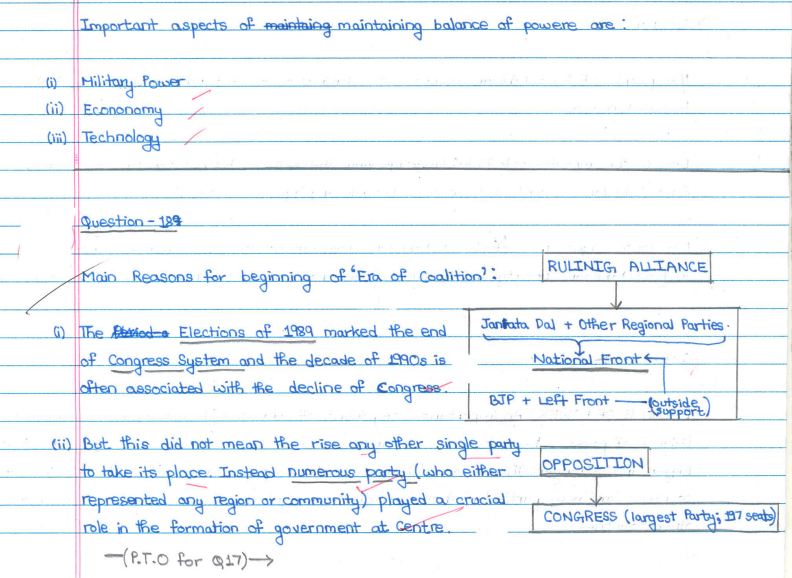 Important aspects of maintaing maintaining balance of powere are :
(i) Military Power
(ii) Econonomy
(iii) Technology
Question - 189
Main Reasons for beginning of 'Era of Coalition':
(i) The Elections of 1989 marked the end
of Congress System and the decade of 1990s is
often associated with the decline of Congress.
(ii) But this did not mean the rise any other single party
to take its place. Instead numerous party (who either
represented any region or community) played a crucial
role in the formation of government at Centre.
—(P.T.O for Q17)→
RULINIG ALLIANCE
Janata Dal + Other Regional Parties.
National Front
BJP + Left Front (outside support)
OPPOSITION
CONGRESS (largest Party; 197 seats)